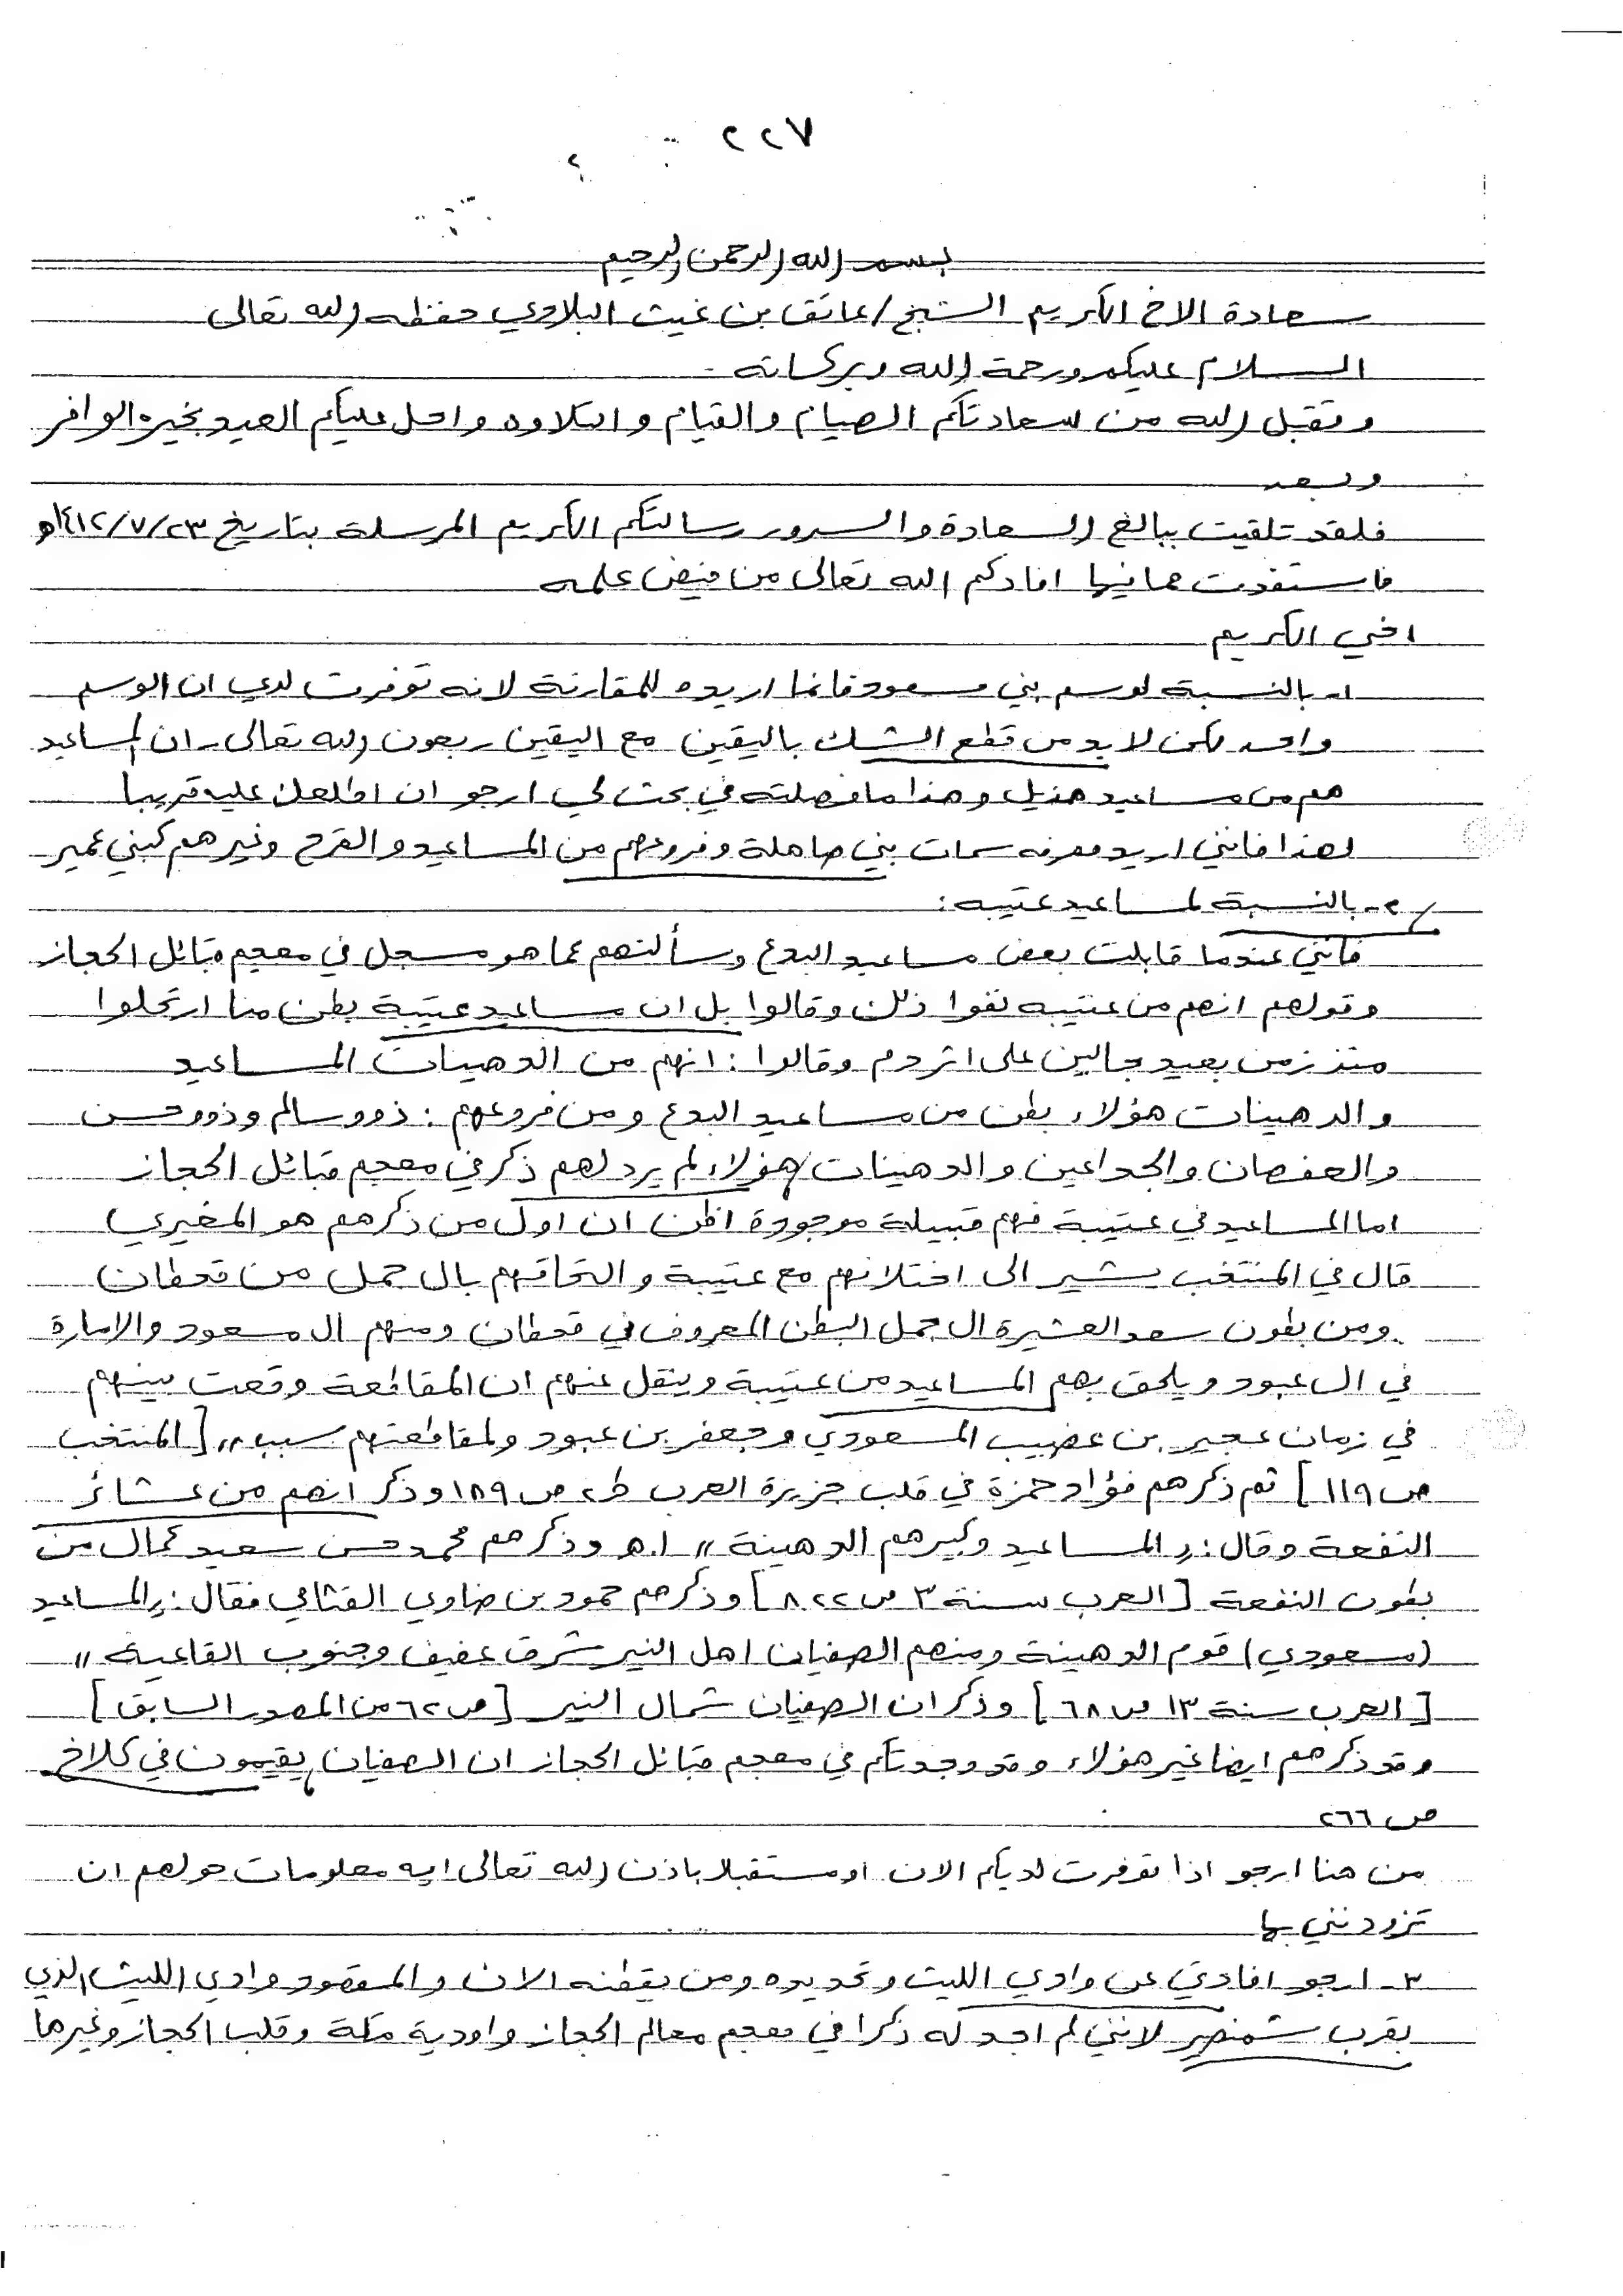 ٢٢٧
بسم الله الرحمن الرحيم
سعادة الاخ الكريم الشيخ / عاتق بن غيث البلادي حفظه الله تعالى
السلام عليكم ورحمة الله وبركاته -
وتقبل الله من سعادتكم الصيام والقيام والتلاوه واحل عليكم العيد بخيره الوافر
وبعد
فلقد تلقيت ببالغ السعادة والسرور رسالتكم الكريم المرسلة بتاريخ ١٤١٢/٧/٢٣هـ
فاستفدت مما فيها افادكم الله تعالى من فيض علمه
اخي الكريم
١- بالنسبة لوسم بني مسعود فانما اريده للمقارنة لانه توفرت لدي ان الوسم
واحد لكن لا بد من قطع الشك باليقين مع اليقين بعون الله تعالى ان المساعيد
هم من مساعيد هذيل وهذا ما فصلته في بحث لي ارجو ان اطلعك عليه قريبا
لهذا فانني اريد معرفه سمات بني صاهلة وفروعهم من المساعيد والقرح وغيرهم كبني عمير
٢- بالنسبة لمساعيد عتيبه :
فانني عندما قابلت بعض مساعيد البدع وسألتهم عما هو مسجل في معجم قبائل الحجاز
وقولهم انهم من عتيبه نفوا ذلك وقالوا بل ان مساعيد عتيبة بطن منا ارتحلوا
منذ زمن بعيد جالين على اثر دم وقالوا : انهم من الدهينات المساعيد
والدهينات هؤلاء بطن من مساعيد البدع ومن فروعهم : ذوو سالم وذوو حسن
والعفصان والجداعين والدهينات هؤلاء لم يرد لهم ذكر في معجم قبائل الحجاز
اما المساعيد في عتيبة فهم قبيلة موجودة اظن ان اول من ذكرهم هو المغيري
قال في المنتخب يشير الى اختلافهم مع عتيبة والتحاقهم بال جمل من قحطان
ومن بطون سعد العشيرة ال جمل البطن المعروف في قحطان ومنهم ال مسعود والامارة
في ال عبود ويلحق بهم المساعيد من عتيبة وينقل عنهم ان المقاطعة وقعت بينهم
في زمان عجير بن عضيب المسعودي وجعفر بن عبود ولمقاطعتهم سبب " [المنتخب
ص ١١٩] ثم ذكرهم فؤاد حمزة في قلب جزيرة العرب ط٢ ص ١٨٩ وذكر انهم من عشائر
النفعة وقال : " المساعيد وكبيرهم الدهينة " ا.هـ وذكرهم محمد حسن سعيد كمال من
بطون النفعة [العرب سنة ٣ ص ٨٢٢] وذكرهم حمود بن ضاوي القثامي فقال : " المساعيد
(مسعودي) قوم الدهينة ومنهم الصفيان اهل النير شرق عفيف وجنوب القاعية "
[العرب سنة ١٣ ص ٦٨] وذكر ان الصفيان شمال النير [ص ٦٢ من المصدر السابق]
وقد ذكرهم ايضا غير هؤلاء وقد وجدتكم في معجم قبائل الحجاز ان الصفيان يقيمون في كلاخ
ص ٢٦٦
من هنا ارجو اذا توفرت لديكم الان او مستقبلا باذن الله تعالى ايه معلومات حولهم ان
تزودنني بها
٣- ارجو افادتي عن وادي الليث وتحديده ومن يقطنه الان والمقصود وادي الليث الذي
بقرب شمنصير لانني لم اجد له ذكرا في معجم معالم الحجاز واودية مكة وقلب الحجاز وغيرها